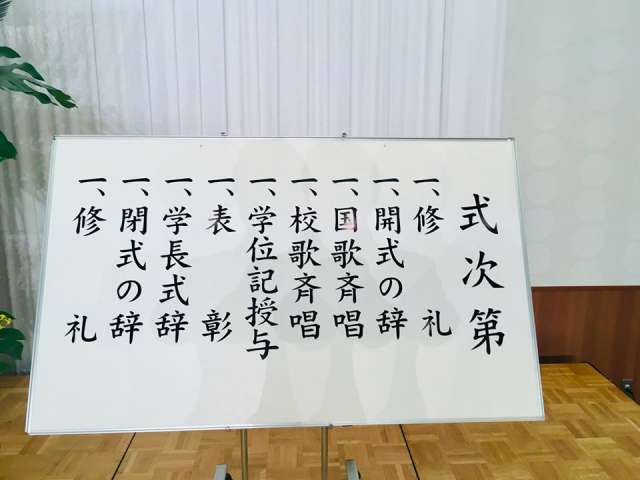 式次第
一、修礼
一、開式の辞
一、国歌斉唱
一、校歌斉唱
一、学位記授与
一、表彰
一、学長式辞
一、閉式の辞
一、修礼